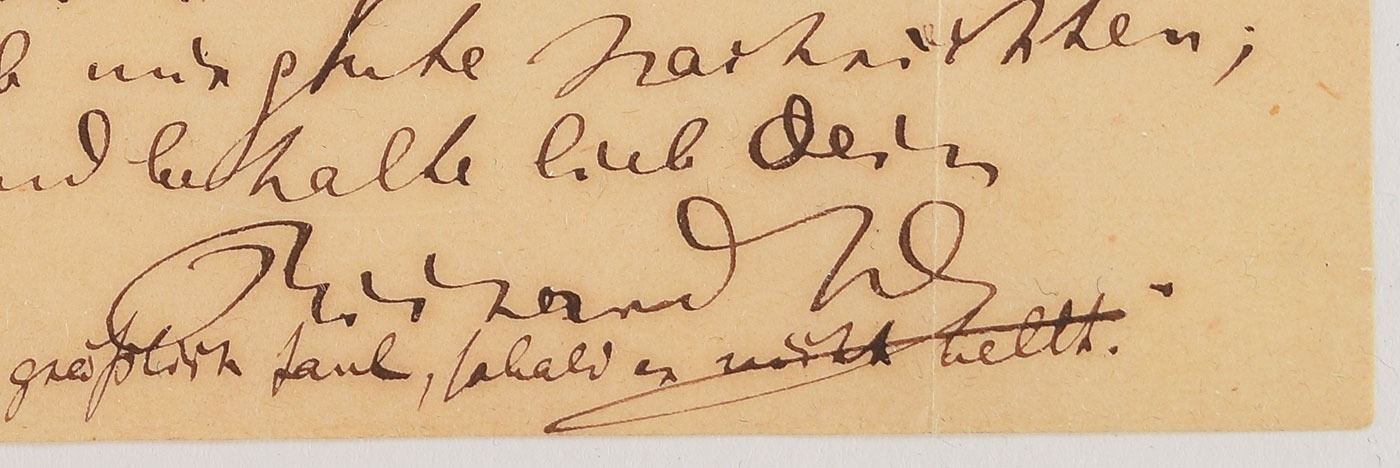 b mir gute Nachrichten;
nd behalte lieb Dein
Richard W
gräßlich faul, sobald er nicht bellt.